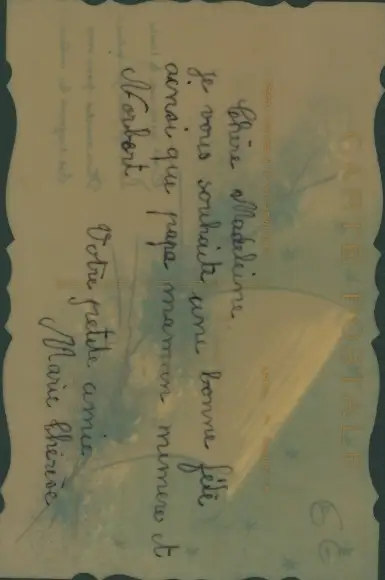 CARTE POSTALE
Chère Madeleine.
Je vous souhaite une bonne fête
ainsi que papa maman mimere et
Norbert
Votre petite amie.
Marie Thérèse